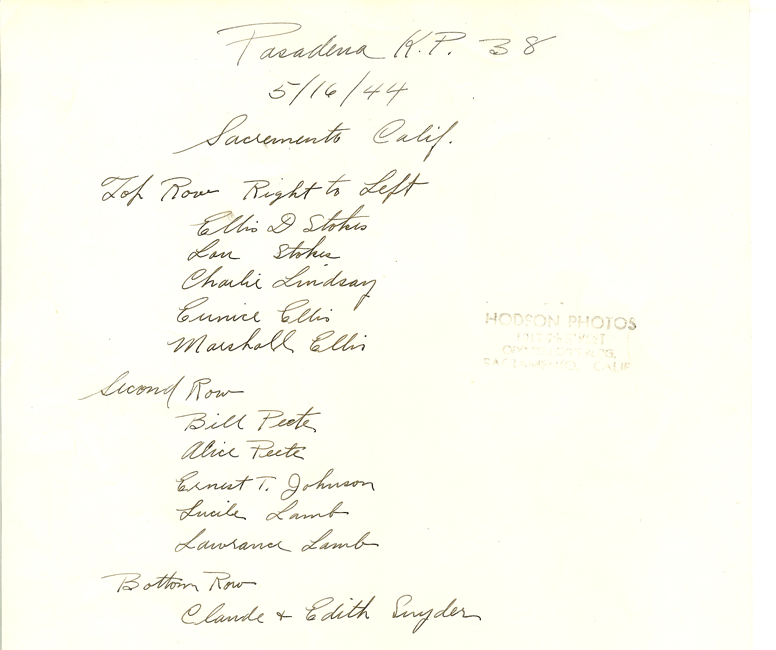 Pasadena K.P. 38
5/16/44
Sacremento Calif.
Top Row Right to Left
Ellis D Stokes
Lou Stokes
Charlie Lindsay
Eunice Ellis
Marshall Ellis
HODSON PHOTOS
SACRAMENTO, CALIF
Second Row
Bill Peete
Alice Peete
Ernest T. Johnson
Lucile Lamb
Lawrance Lamb
Bottom Row
Claude + Edith Snyder